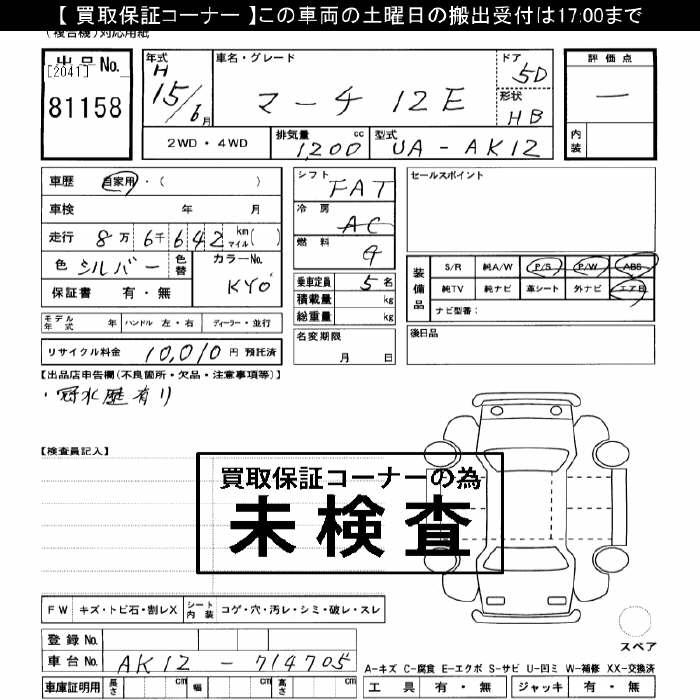 【 買取保証コーナー 】この車両の土曜日の搬出受付は17:00まで
(複合機)対応用紙
出品No. [2041] 81158
年式 H 15/6月
車名・グレード マーチ 12E
ドア 5D
形状 HB
評価点 —
内装
2WD・4WD
排気量 1,200 cc
型式 UA-AK12
車歴 自家用・( )
車検 年 月
走行 8万6千642 km マイル( )
色 シルバー 色替
カラーNo. KY0
保証書 有・無
シフト FAT
冷房 AC
燃料
乗車定員 5名
積載量 kg
総重量 kg
セールスポイント
装備品 S/R 純A/W P/S P/W ABS
純TV 純ナビ 革シート 外ナビ エアB
ナビ型番:
モデル年式 年 ハンドル 左・右 ディーラー・並行
リサイクル料金 10,010円 預託済
名変期限 月 日
後日品
【出品店申告欄(不良箇所・欠品・注意事項等)】
・冠水歴有り
【検査員記入】
買取保証コーナーの為
未検査
FW キズ・トビ石・割レX シート内装 コゲ・穴・汚レ・シミ・破レ・スレ
スペア
登録No.
車台No. AK12-714705
A-キズ C-腐食 E-エクボ S-サビ U-凹ミ W-補修 XX-交換済
車庫証明用 長さ cm 幅 cm 高さ cm
工具 有・無 ジャッキ 有・無